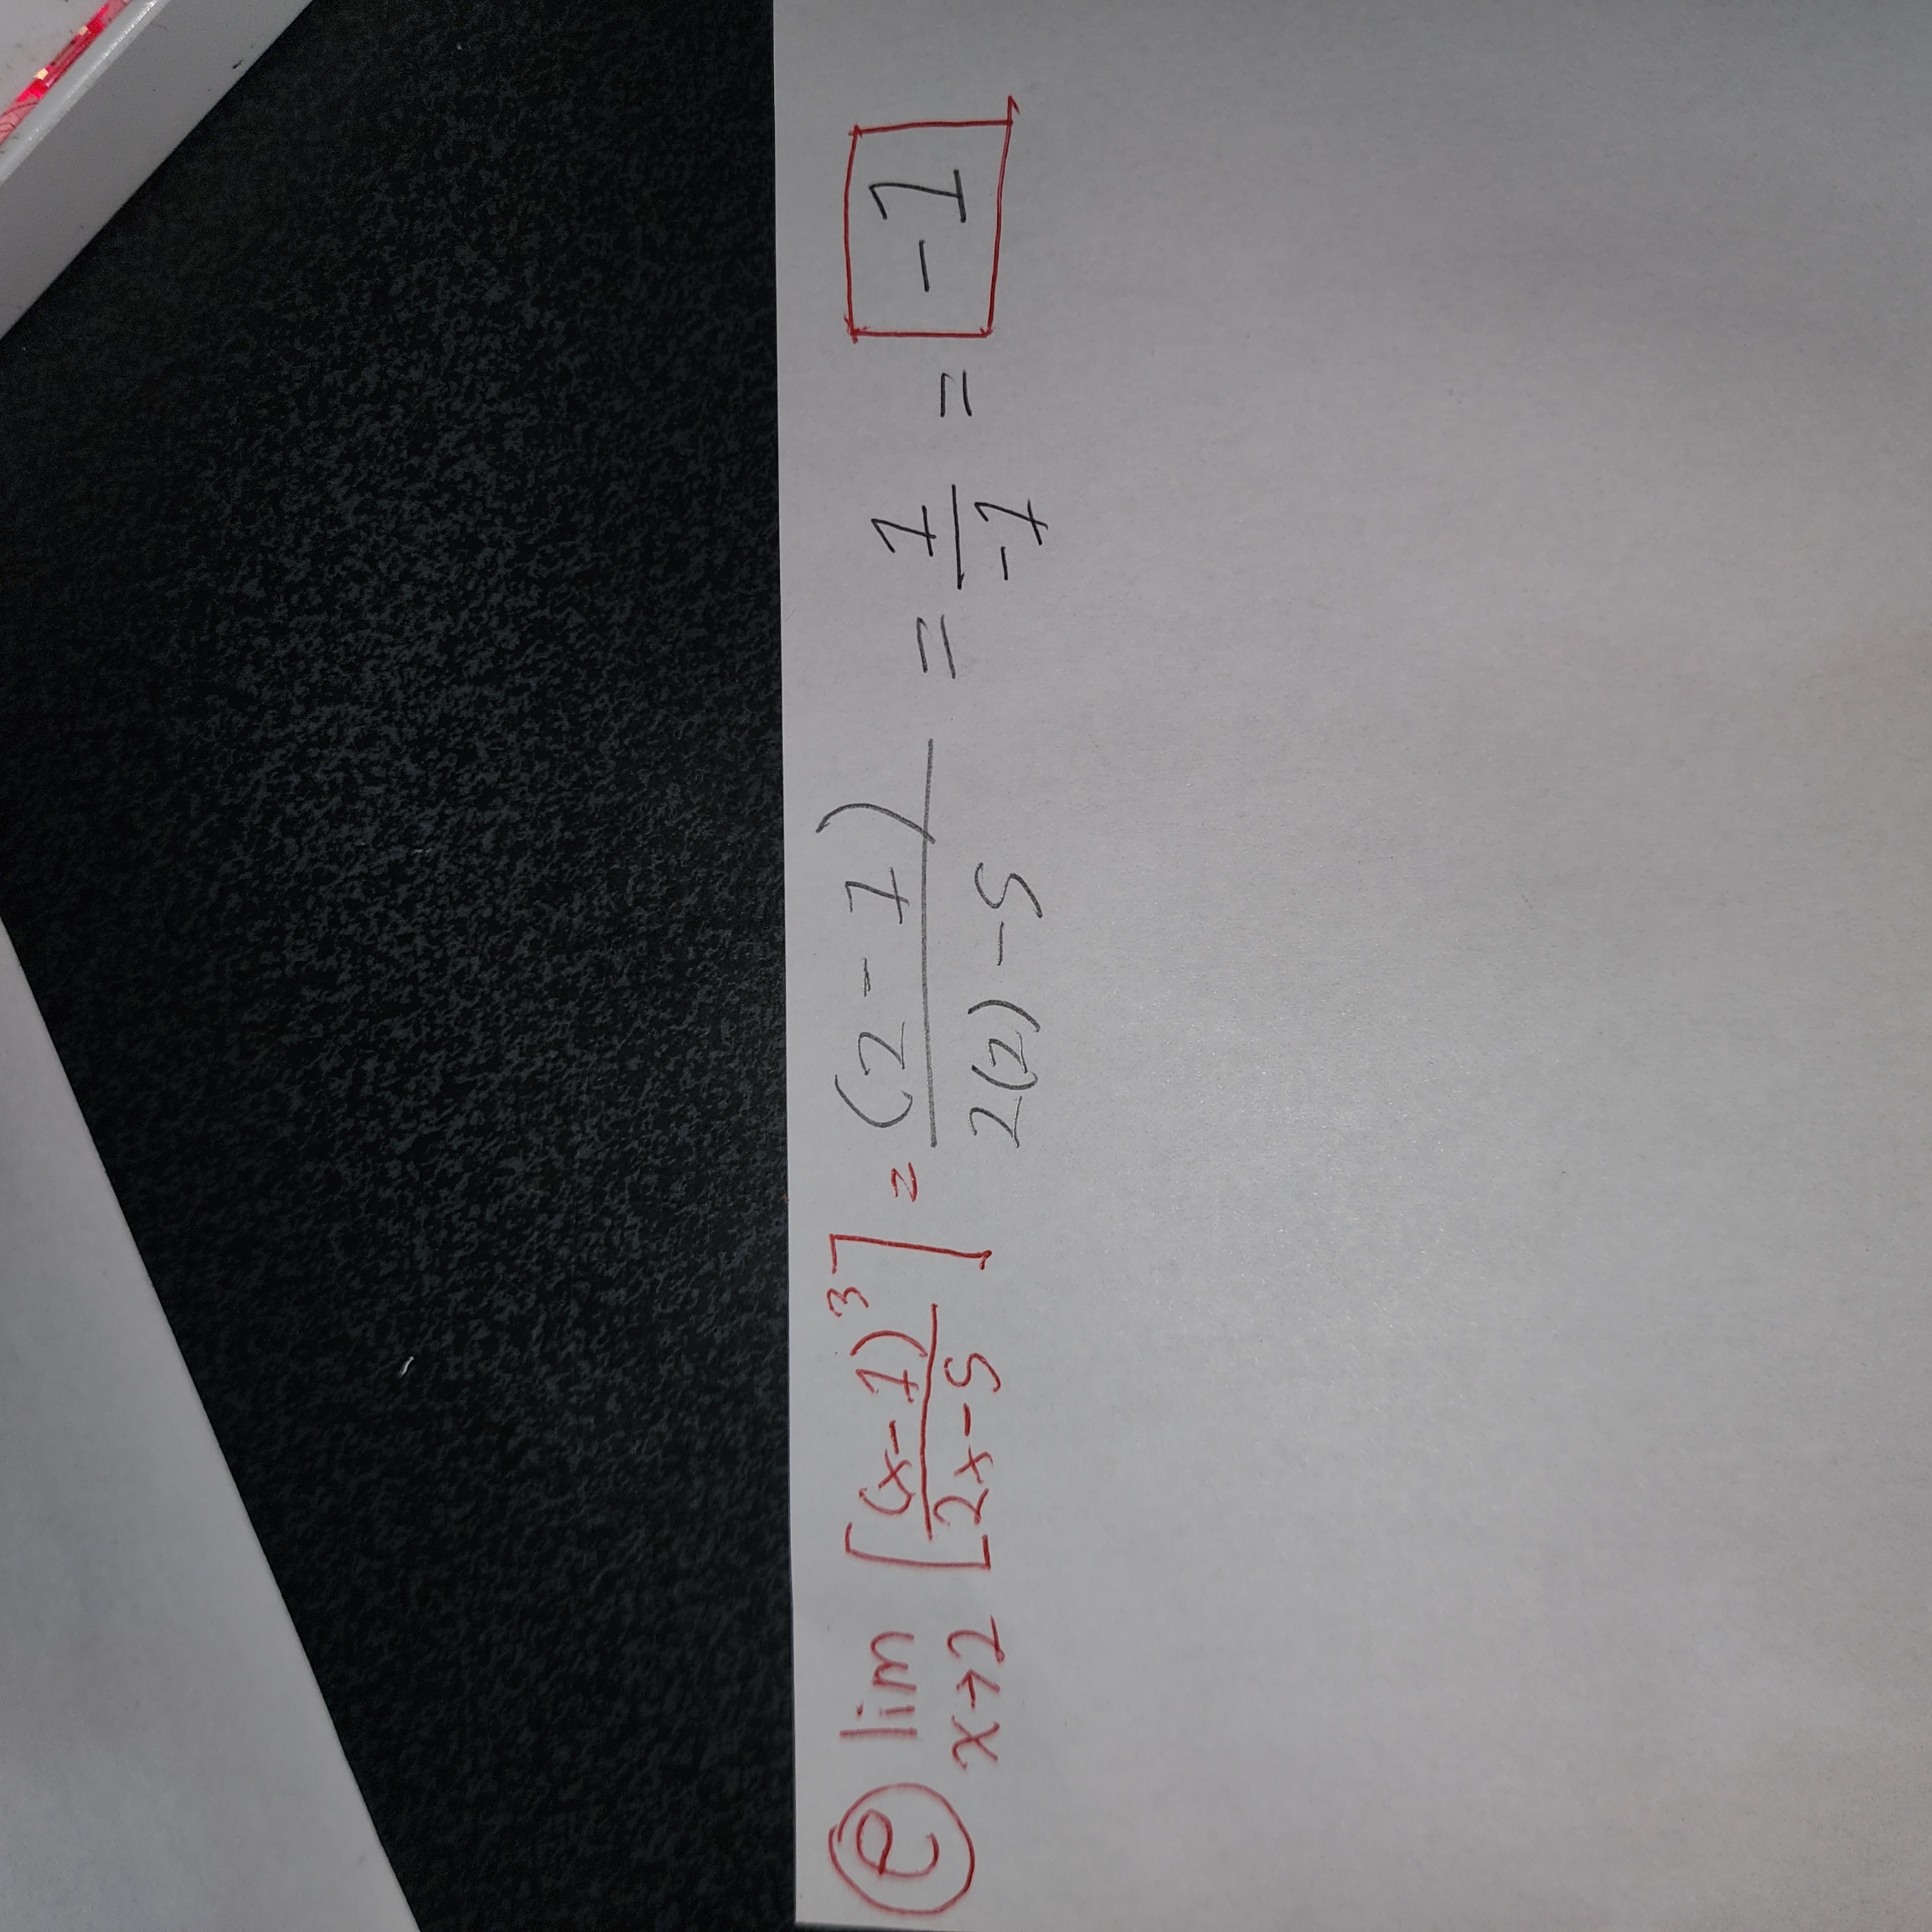 ⓔ lim x→2 [(x-1)³/(2x-5)] = (2-1)/(2(2)-5) = 1/-1 = -1